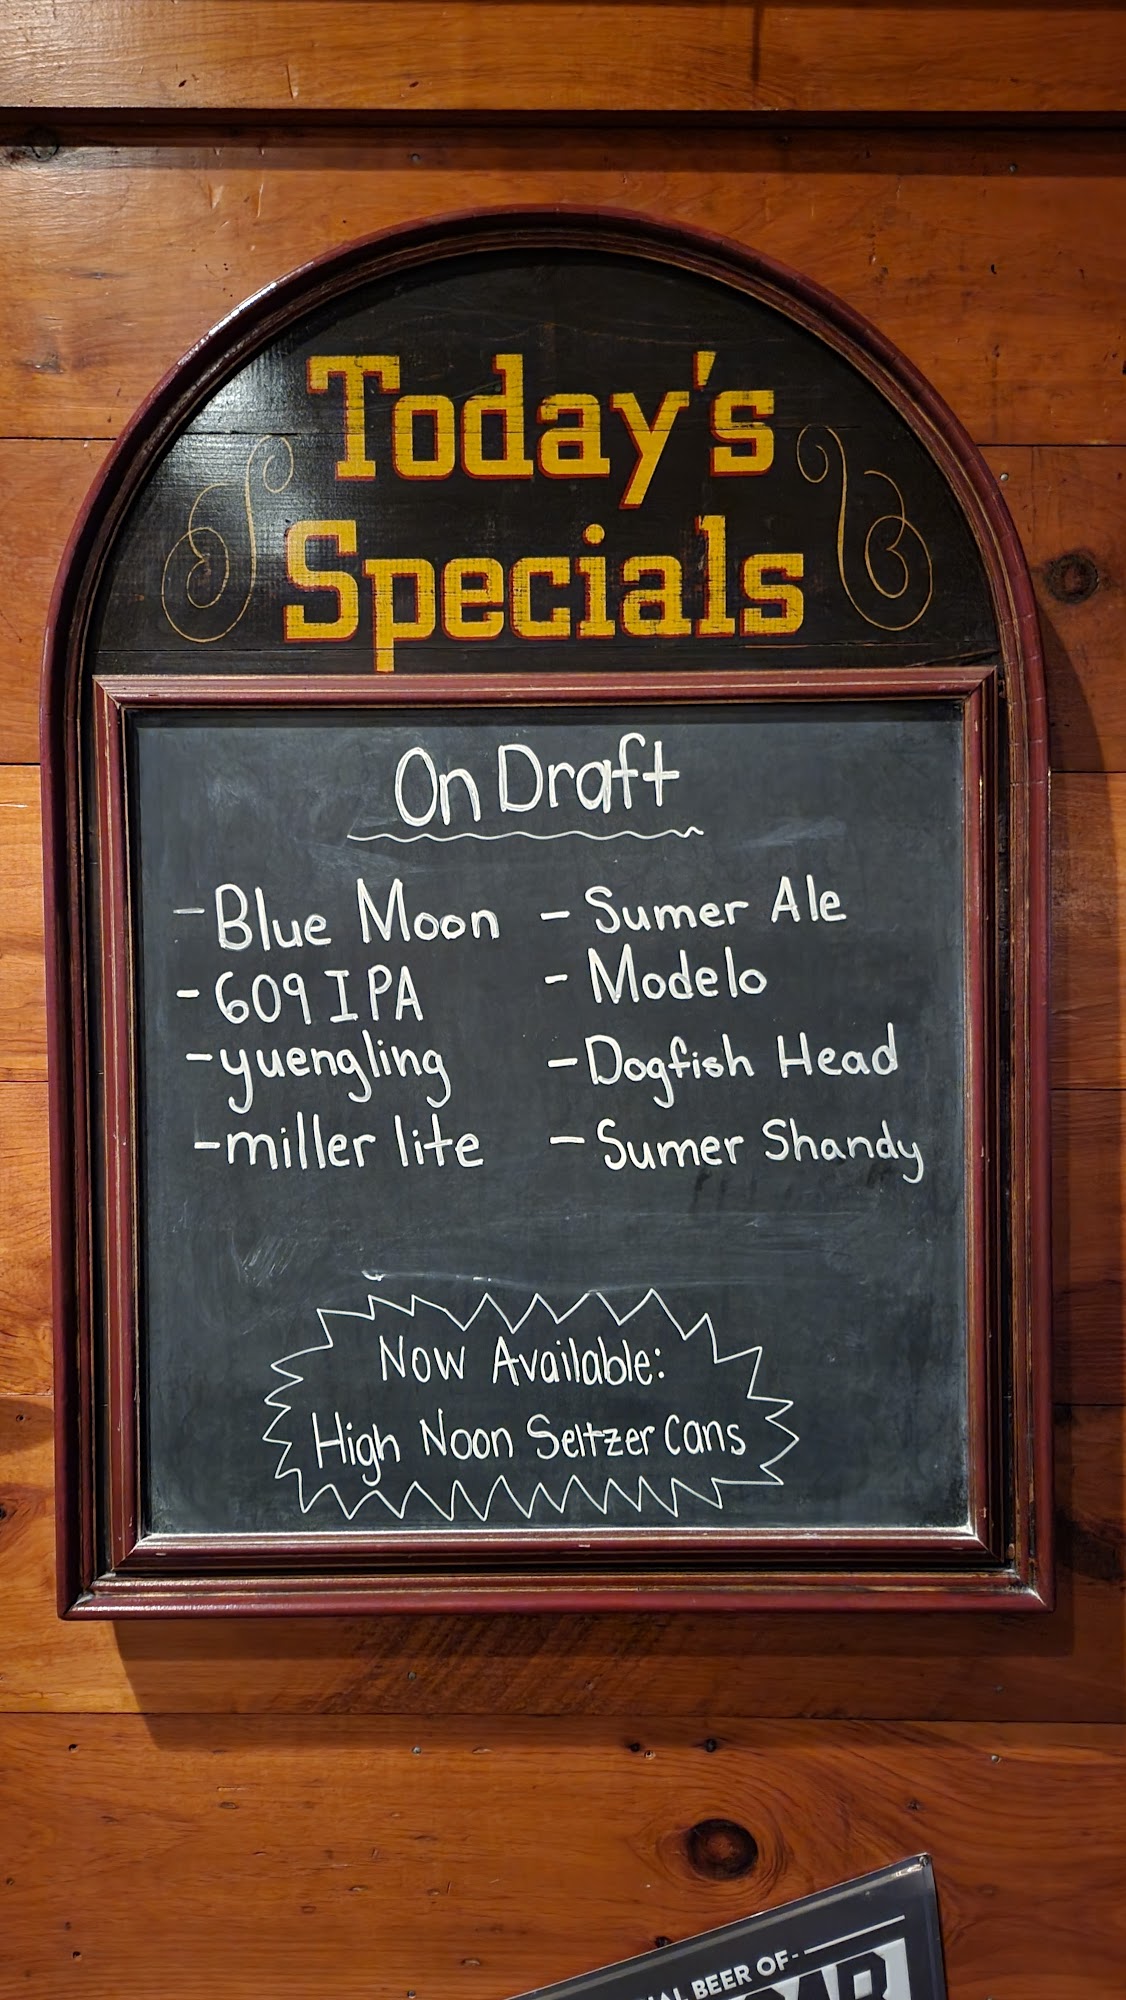 Today's
Specials
On Draft
- Blue Moon
- 609 IPA
- yuengling
- miller lite
- Sumer Ale
- Modelo
- Dogfish Head
- Sumer Shandy
Now Available:
High Noon Seltzer Cans
BEER OF